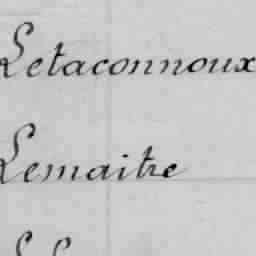 Letaconnoux
Lemaitre